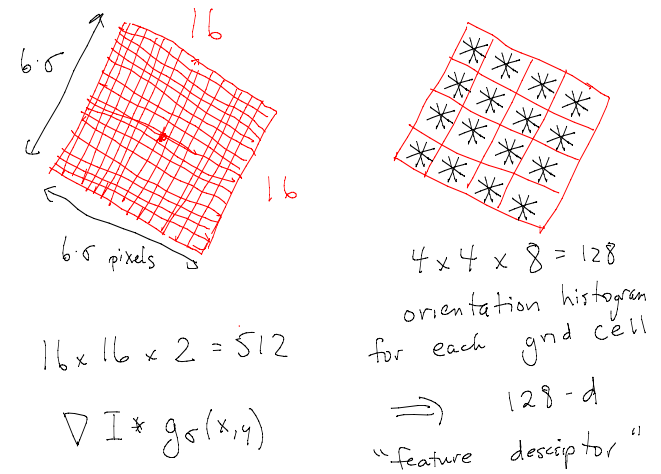 16
6·σ
16
6·σ pixels
16 x 16 x 2 = 512
∇ I * gσ(x,y)
4 x 4 x 8 = 128
orientation histogram
for each grid cell
⇒ 128-d
"feature desciptor"